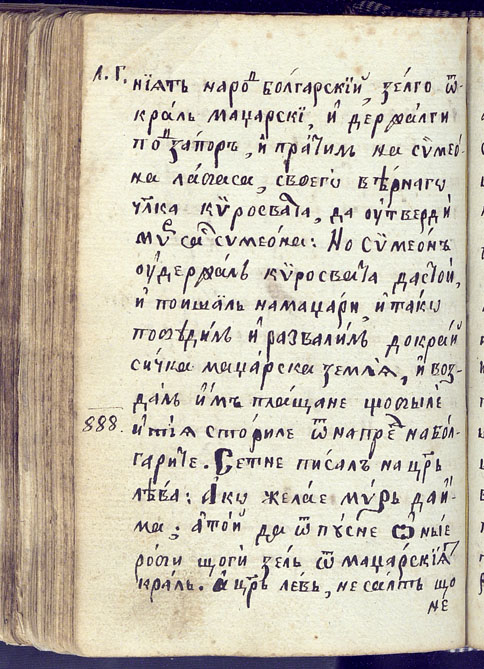 Л. Г. нїятъ наро́д бо́лгарскїй, зе́лго ѿ
кра́ль мацарскі, и҆ держалги
под̾ запоръ, и҆ пра́тилъ на сѷмео́
на лагаса, своего вѣ́рнаго
чл҃ка кѷросва́та, да ᲂу҆тверди
миръ са сѷмео́на: Но сѷмео́нъ
ᲂу҆держалъ кѷросва́та да стои́,
и҆ пойшалъ на мацари, и҆ такѡ
погу́дилъ и҆ развали́лъ до край
сичка маца́рска землѧ̀, и҆ воз
далъ и҆мъ пла́щане що были
888. и҆ тїѧ сториле ѿ напре́д на бол-
гариче. Сетне писалъ на цр҃ь
лѣва: А҆ко желае миръ да и҆-
ма; а҆ то́й да ѿпу́сне ѻ҆ныѐ
роби щоги зелъ ѿ мацарскїѧт
кра́ль. а҆ цр҃ь левъ, не са́лтъ що
не